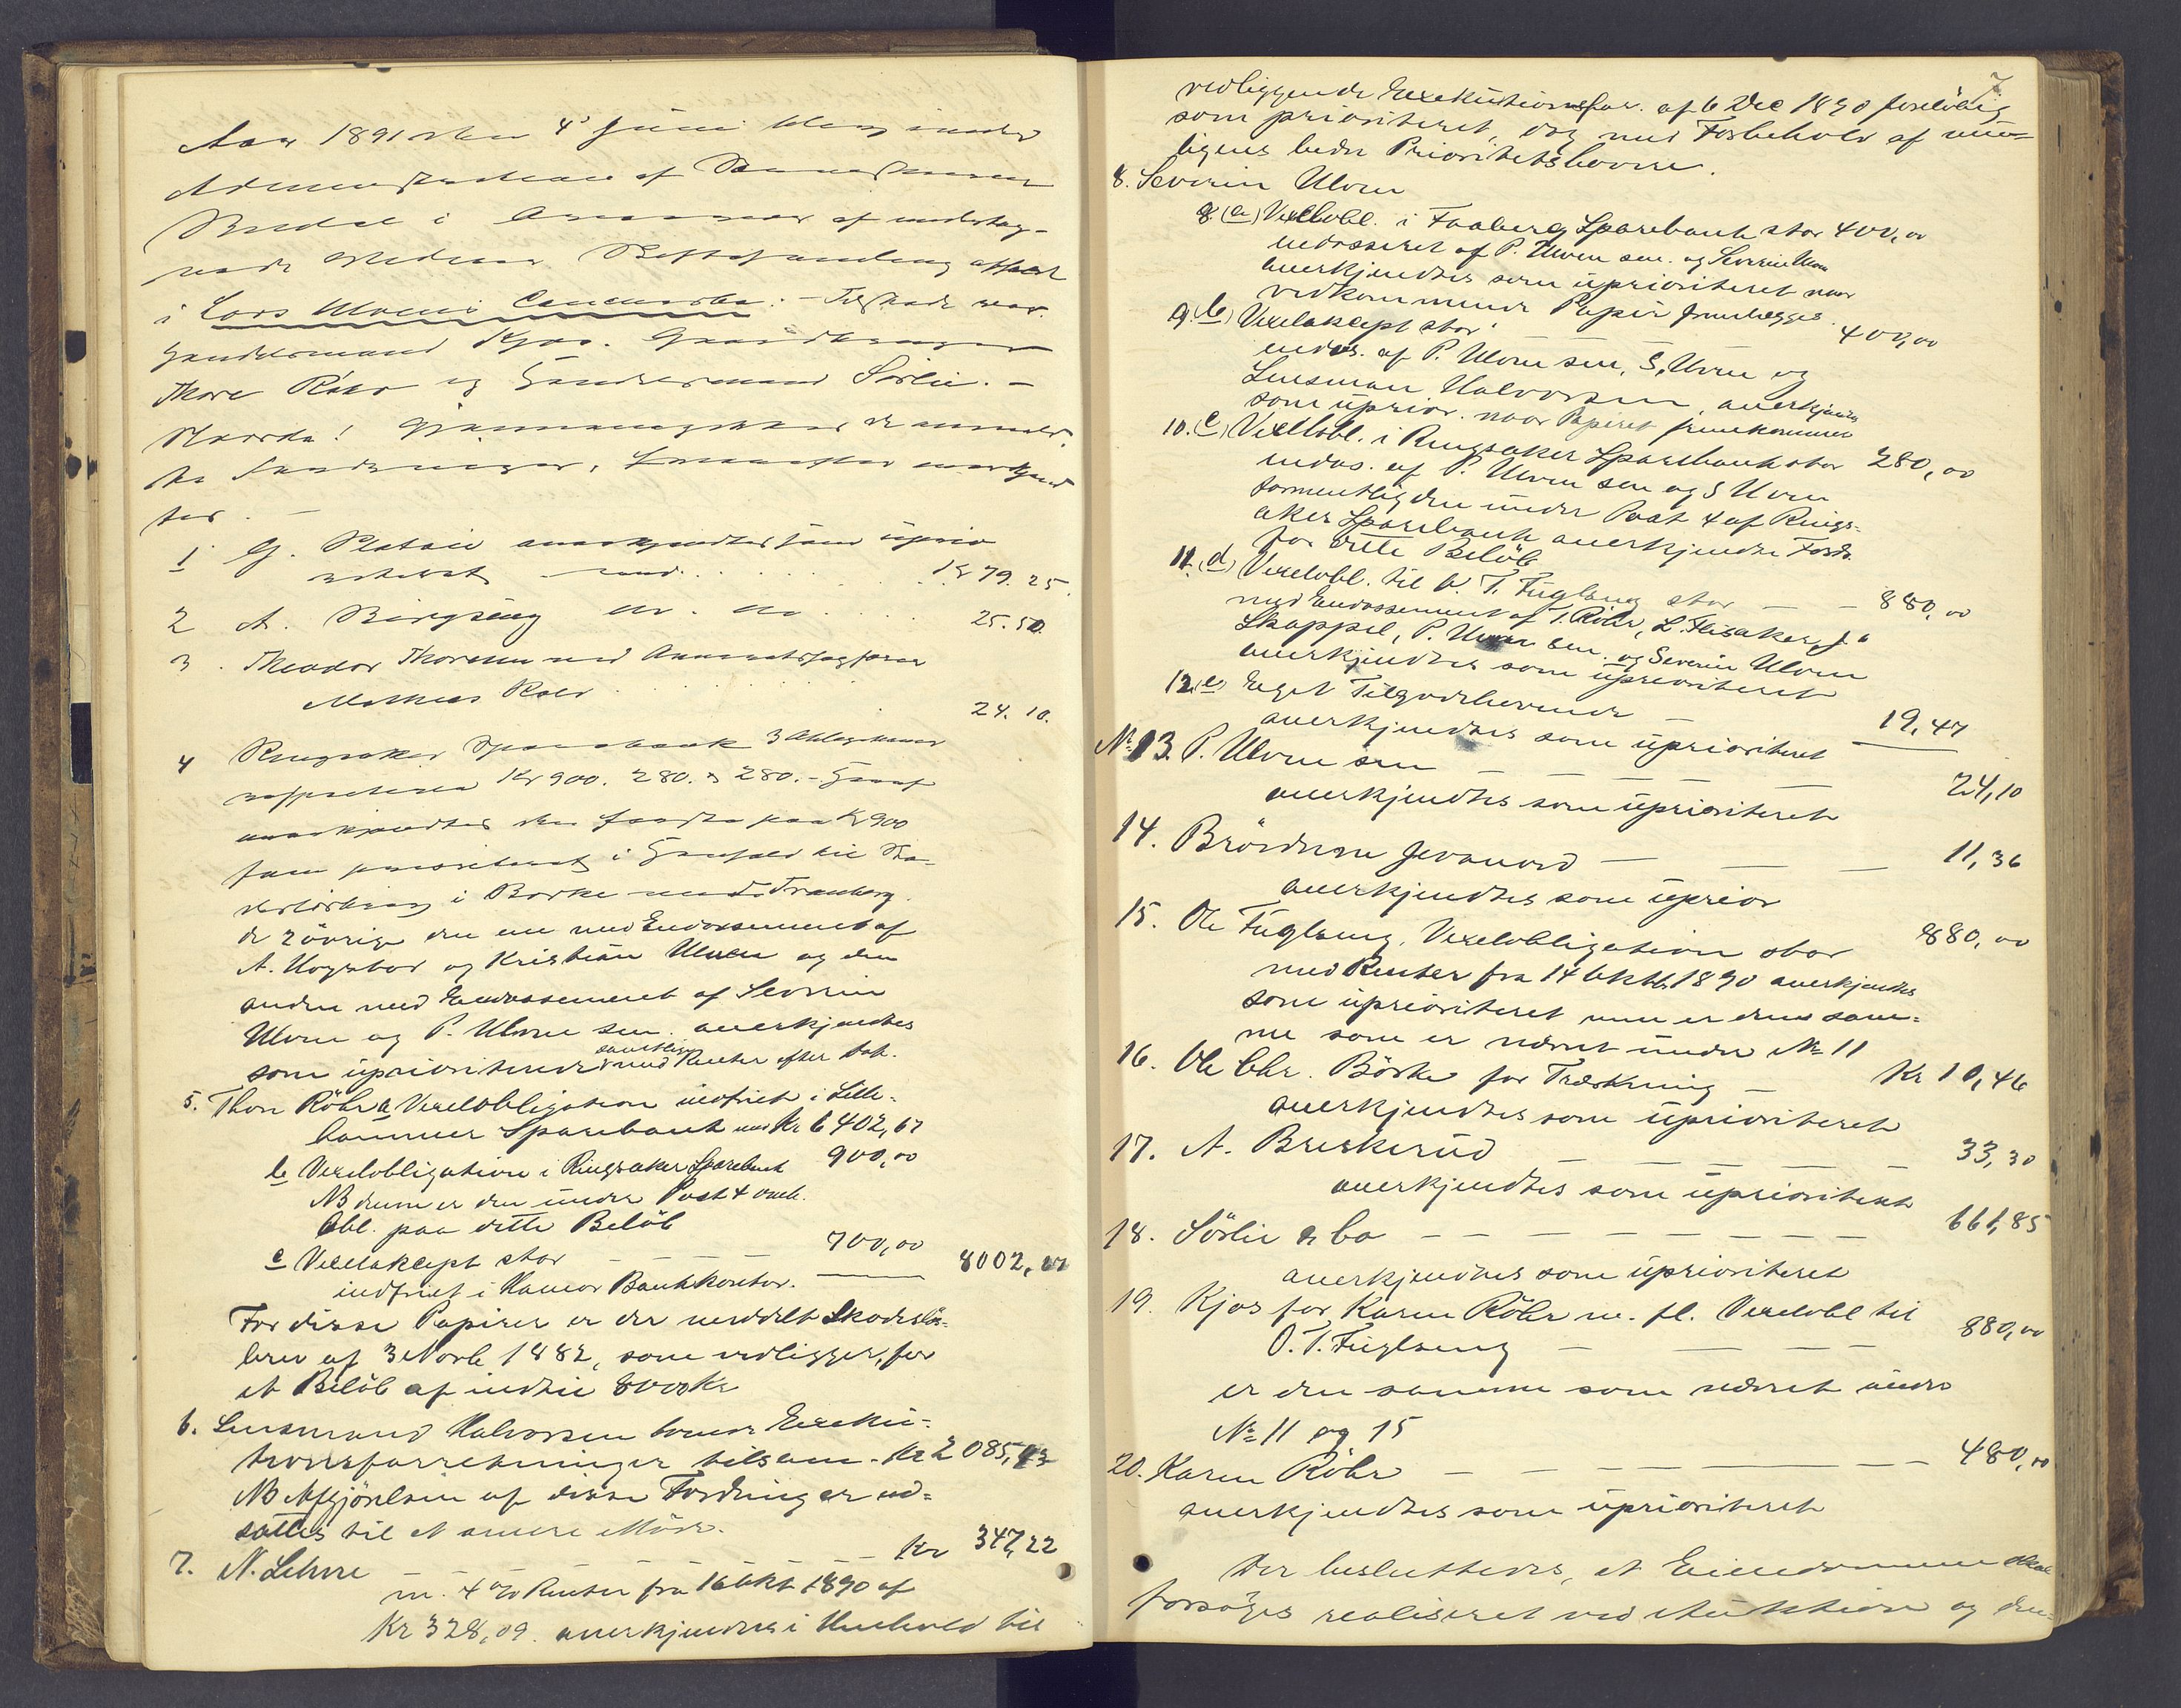 Aar 1891 den 4' Juni blev under
Administration af
i af underteg-
nede Skiftesamling afholdt
i Lars Ulvens Concursbo: - Tilstede var
Handelsmand Kjos. Gaardbruger
Thore Röhr og Handelsmand Sörlie. -
Mødte! Gjennemgikkes de anmeld-
te Fordringer,
tes. -
1 G. Platou anerkjendtes som uprio
riteret Kr 79.25.
2 A. 25.50.
3. Theodor Thoresen med
Mathias 24.10.
4 Ringsaker Sparebank 3
Kr 900. 280. & 280. -
anerkjendtes den første paa Kr 900
som prioriteret i Henhold til Ska-
deslösbrev i Börke med Tranberg.
de 2 övrige den ene med Endossement af
A. og Kristian Ulven og den
anden med Endossement af Severin
Ulven og P. Ulven sen. anerkjendtes
som uprioriterede samtlige med Renter efter
5. Thore Röhr a Vexelobligation indfriet i Lille-
hammer Sparebank med Kr 6402,67
b Vexelobligation i Ringsaker Sparebank 900,00
NB denne er den under Post 4 omh.
Obl. paa dette Belöb
c Vexelakcept stor — — — 700,00
indfriet i Hamar Bankkontor. 8002,67
For disse Papirer er der meddelt Skadeslös-
brev af 3 Novb 1882, som vedligger, for
et Belöb af indtil 8000 Kr
6. Lensmand Halvorsen Exeku-
tionsforretninger tilsam. Kr 2085,
NB Afgjörelsen af disse Fordringer ud-
sattes til et senere Möde.
7. N. Lehne — — — — Kr 347,22
m. 4 % Renter fra 16 Okt 1890 af
Kr 328,09. anerkjendtes i Henhold til
7
vedliggende Exekutionsfor. af 6 Dec 1890 foreløbig
som prioriteret, dog med Forbehold af mu-
ligens bedre Prioritetshavere.
8. Severin Ulven
8. (a) Vexelobl. i Faaberg Sparebank stor 400,00
endosseret af P. Ulven sen. og Severin Ulven
anerkjendtes som uprioriteret naar
vedkommende Papir fremlægges.
9. (b) Vexelakcept stor — — 400,00
endos. af P. Ulven sen, S. Ulven og
Lensman Halvorsen, anerkjendes
som uprior. naar Papiret fremkommer
10. (c) Vexelobl. i Ringsaker Sparebank stor 280,00
endos. af P. Ulven sen og S Ulven
formentlig den under Post 4 af Rings-
aker Sparebank anerkjendte Fordr.
for dette Belöb
11. (d) Vexelobl. til O. T. Fuglseng stor — — 880,00
med Endossement af T. Röhr, L. Flisaker, J.
Skappel, P. Ulven sen. og Severin Ulven
anerkjendtes som uprioriteret
12. (e) Eget Tilgodehavende — 19,47
anerkjendtes som uprioriteret
No 13. P. Ulven sen — — — — 24,10
anerkjendtes som uprioriteret
14. Brödrene Jevanord — — — 11,36
anerkjendtes som uprior
15. Ole Fuglseng, Vexelobligation stor 880,00
med Renter fra 14 Oktb. 1890 anerkjendtes
som uprioriteret men er den sam-
me som er nævnt under No 11
16. Ole Chr. Börke for Træskning — Kr 10,46
anerkjendtes som uprioriteret
17. A. Breskerud — — — — 33,30
anerkjendtes som uprioriteret
18. Sörlie & Co — — — — — — 661,85
anerkjendtes som uprioriteret
19. Kjos for Karen Röhr m. fl. Vexelobl til
O. T. Fuglseng — — — — 880,00
er den samme som nævnt under
No 11 og 15
20. Karen Röhr — — — — — — 480,00
anerkjendtes som uprioriteret
Der besluttedes, at Eiendommen skal
forsöges realiseret ved Auktion og den